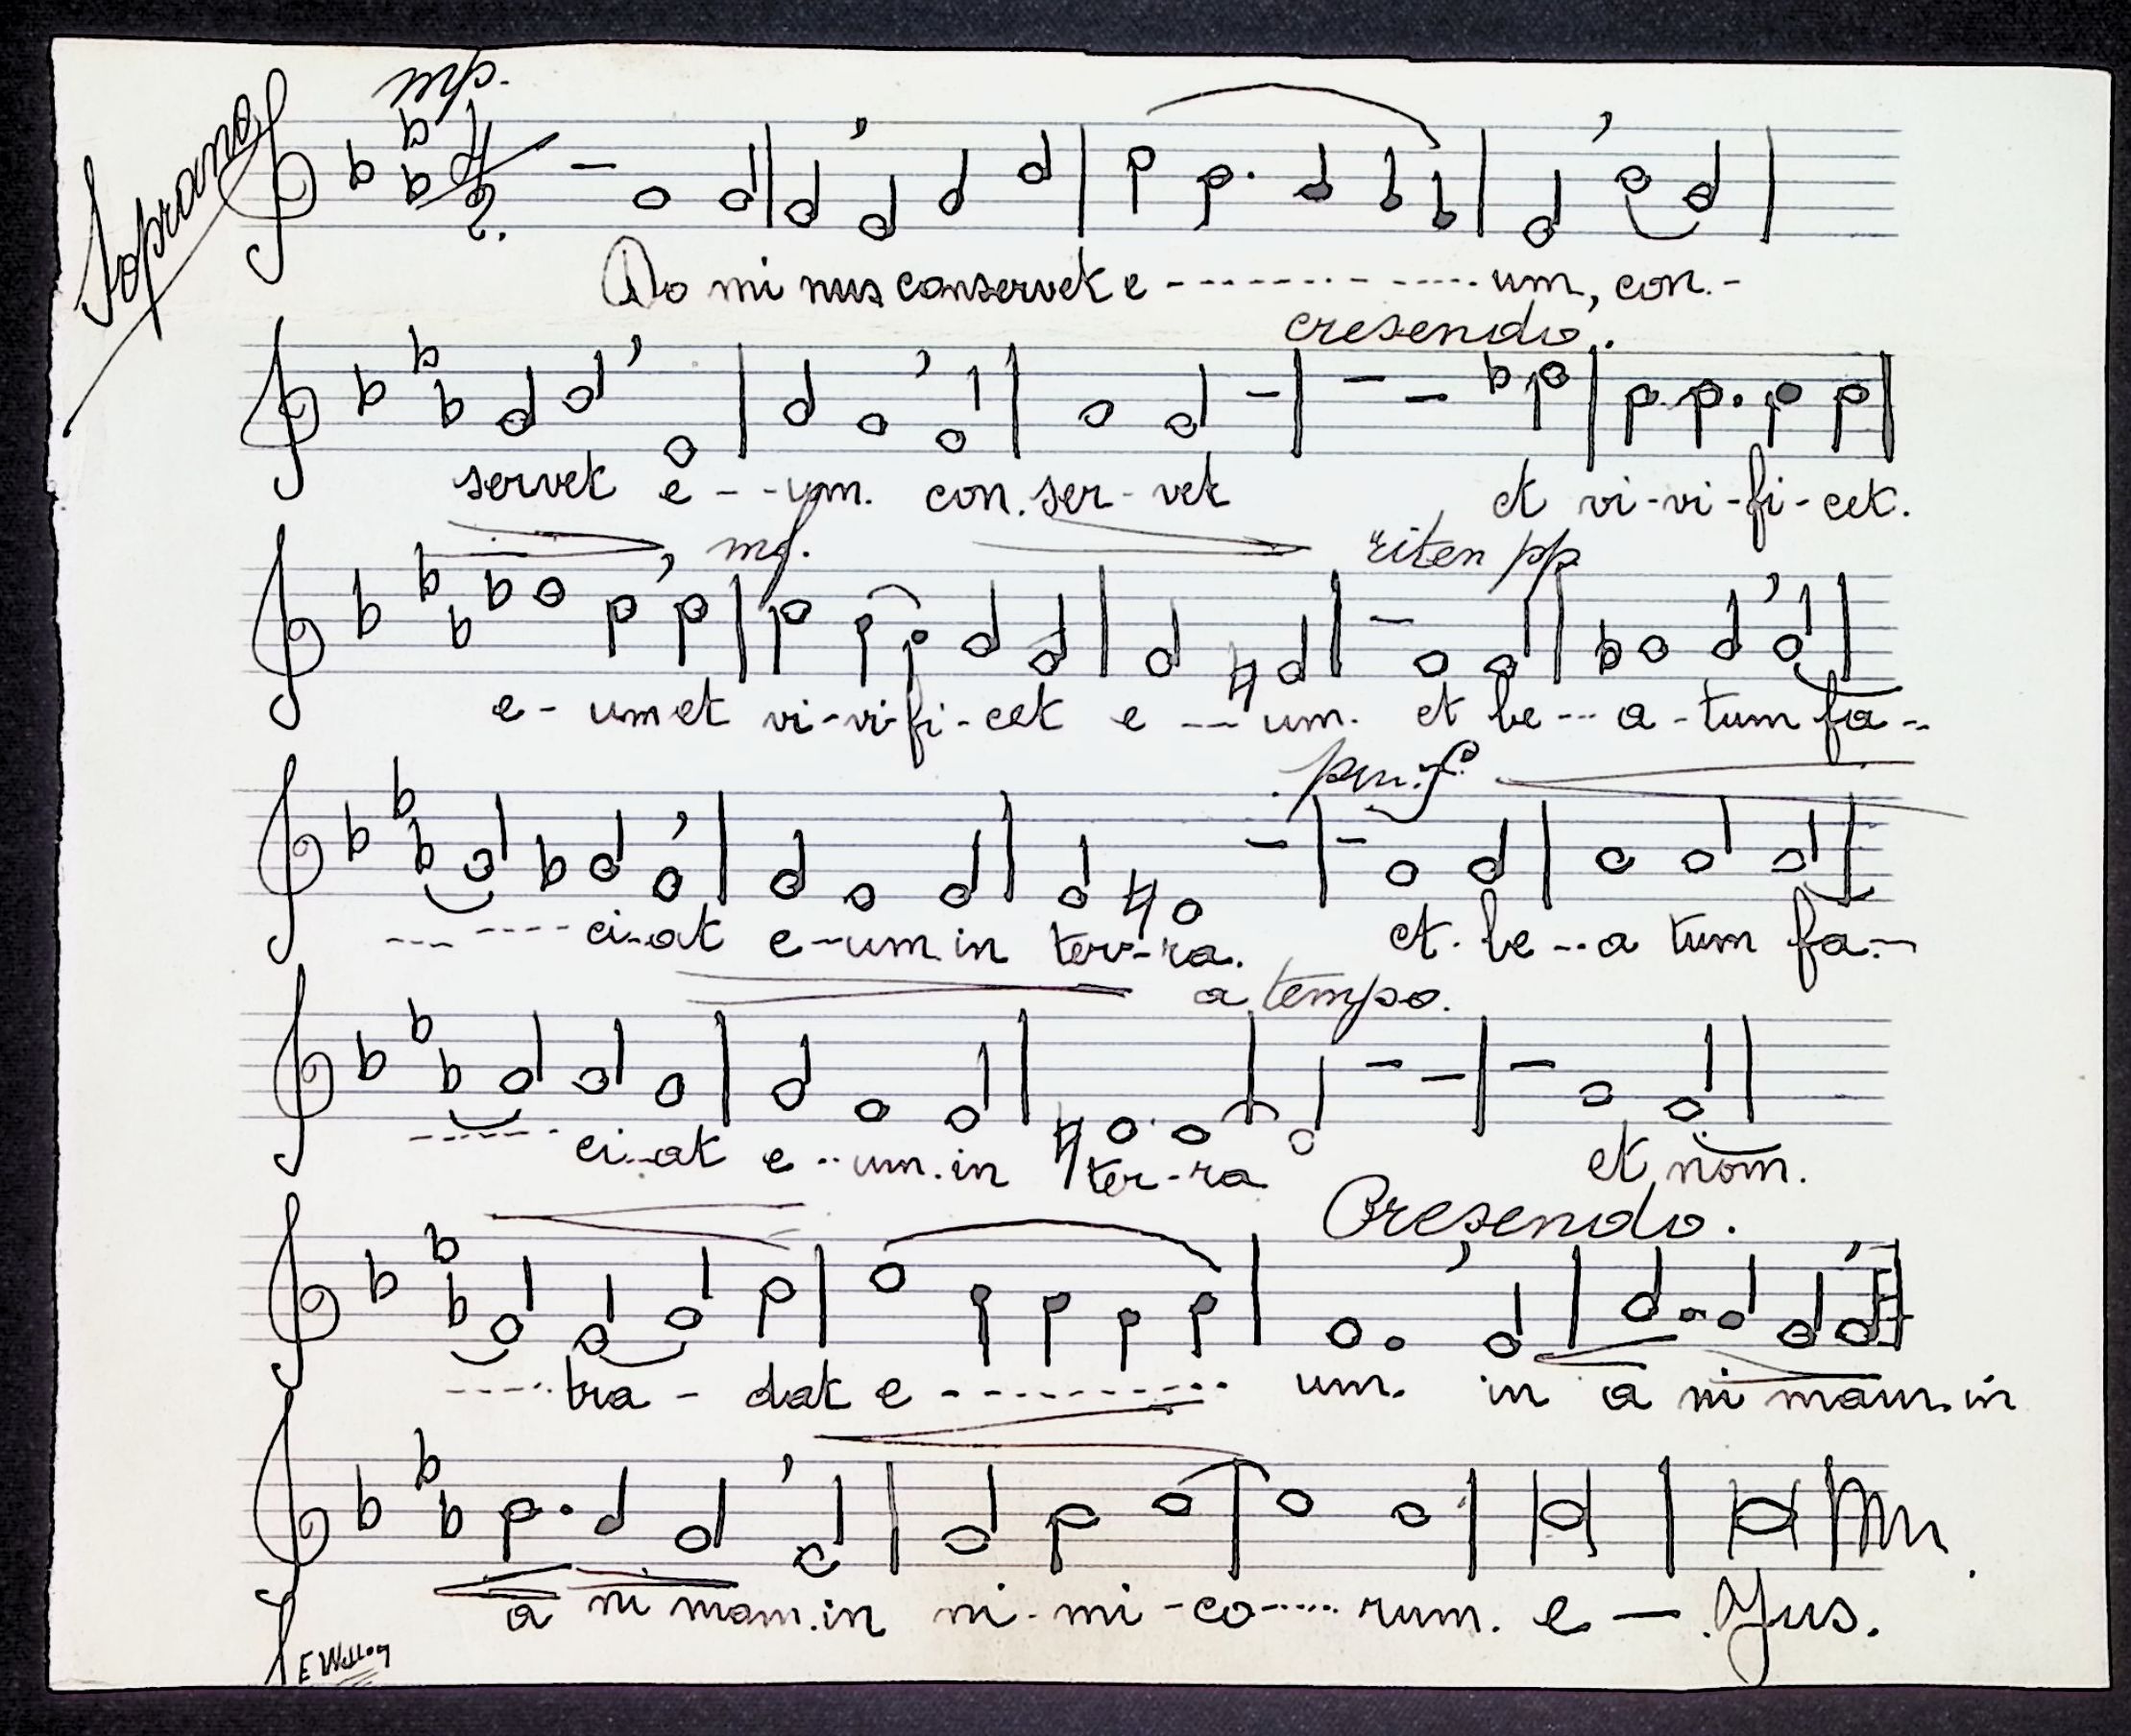 Soprano
mp.
Do mi nus conservet e - - - - - - - - - - - - - um, con.-
cresendo.
servet e - - um. con. ser - vet et vi-vi-fi-cet.
mf. riten pp
e - um et vi-vi fi-cet e -- um. et be --- a - tum fa --
--- ---- ci..at e--um in ter--ra. et. be --- a tum fa.--
a tempo.
------- ci...at e .. um. in ter--ra et nom.
Cresendo.
----- tra - dat e - - - - - - - - - um. in a ni mam. in
a ni mam. in ni - mi - co ----- rum. e — . Yus.